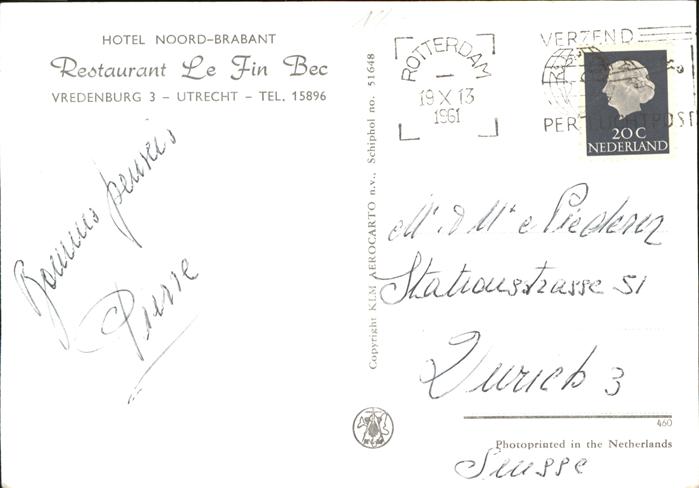 HOTEL NOORD-BRABANT
Restaurant Le Fin Bec
VREDENBURG 3 - UTRECHT - TEL. 15896
Bonnes pensées
Pierre
Copyright KLM AEROCARTO n.v., Schiphol no. 51648
ROTTERDAM
19 X 13
1961
VERZEND
PER LUCHTPOST
20 C
NEDERLAND
Mr & Me
Stationsstrasse 51
Zurich 3
460
Photoprinted in the Netherlands
Suisse
KLM